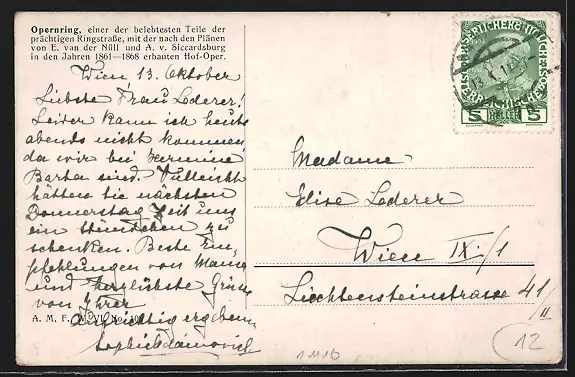 Opernring, einer der belebtesten Teile der
prächtigen Ringstraße, mit der nach den Plänen
von E. van der Nüll und A. v. Siccardsburg
in den Jahren 1861—1868 erbauten Hof-Oper.
Wien 13. Oktober
Liebste Frau Lederer!
Leider kann ich heute
abends nicht kommen,
da wir bei Hermine
Bartha sind. Vielleicht
hätten Sie nächsten
Donnerstag Zeit uns
ein Stündchen zu
schenken. Beste Em-
pfehlungen von Mama
und herzlichste Grüße
von Ihrer
aufrichtig ergebenen
Sophie
A. M. F. W. VI. No.
5 HELLER 5
Madame
Elise Lederer
Wien IX/1
Liechtensteinstrasse 41/II
12